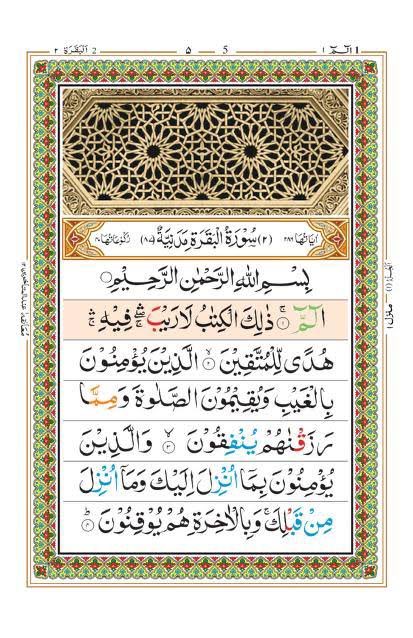 ٱلٓمٓ ١
5 — ٥
2 اَلْبَقَرَة ٢
اٰیَاتُهَا ٢٨٦ (٢) سُوْرَةُ الْبَقَرَةِ مَدَنِيَّةٌ (٨٧) رُكُوْعَاتُهَا ٤٠
بِسْمِ اللهِ الرَّحْمٰنِ الرَّحِيْمِ
الٓمّٓ ۚ‏ ١ ذٰلِكَ الْكِتٰبُ لَا رَيْبَ ۛۖۚ فِيْهِ ۛۚ
هُدًى لِّلْمُتَّقِيْنَ ۙ‏ ٢ الَّذِيْنَ يُؤْمِنُوْنَ
بِالْغَيْبِ وَيُقِيْمُوْنَ الصَّلٰوةَ وَمِمَّا
رَزَقْنٰهُمْ يُنْفِقُوْنَ ۙ‏ ٣ وَالَّذِيْنَ
يُؤْمِنُوْنَ بِمَاۤ اُنْزِلَ اِلَيْكَ وَمَاۤ اُنْزِلَ
مِنْ قَبْلِكَ ۚ وَبِالْاٰخِرَةِ هُمْ يُوْقِنُوْنَ ؕ‏ ٤
منزل ١